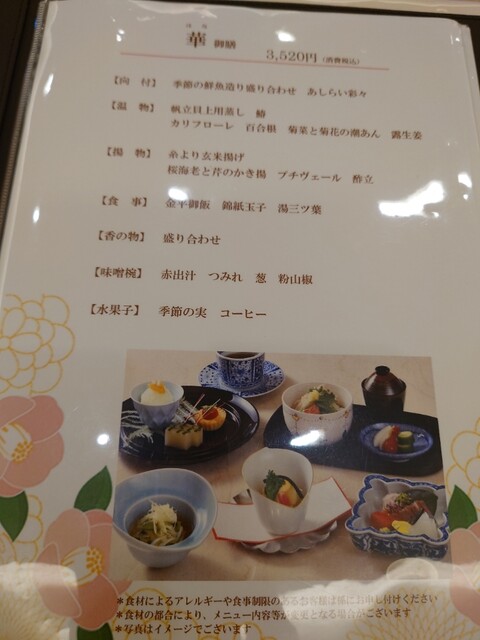 はな
華 御膳
3,520円（消費税込）
【向 付】 季節の鮮魚造り盛り合わせ あしらい彩々
【温 物】 帆立貝上用蒸し 鰆
カリフローレ 百合根 菊菜と菊花の潮あん 露生姜
【揚 物】 糸より玄米揚げ
桜海老と芹のかき揚 プチヴェール 酢立
【食 事】 金平御飯 錦紙玉子 湯三ツ葉
【香の物】 盛り合わせ
【味噌椀】 赤出汁 つみれ 葱 粉山椒
【水果子】 季節の実 コーヒー
＊食材によるアレルギーや食事制限のあるお客様は係にお申し付けください
＊食材の都合により、メニュー内容等が変更となる場合がございます
＊写真はイメージでございます